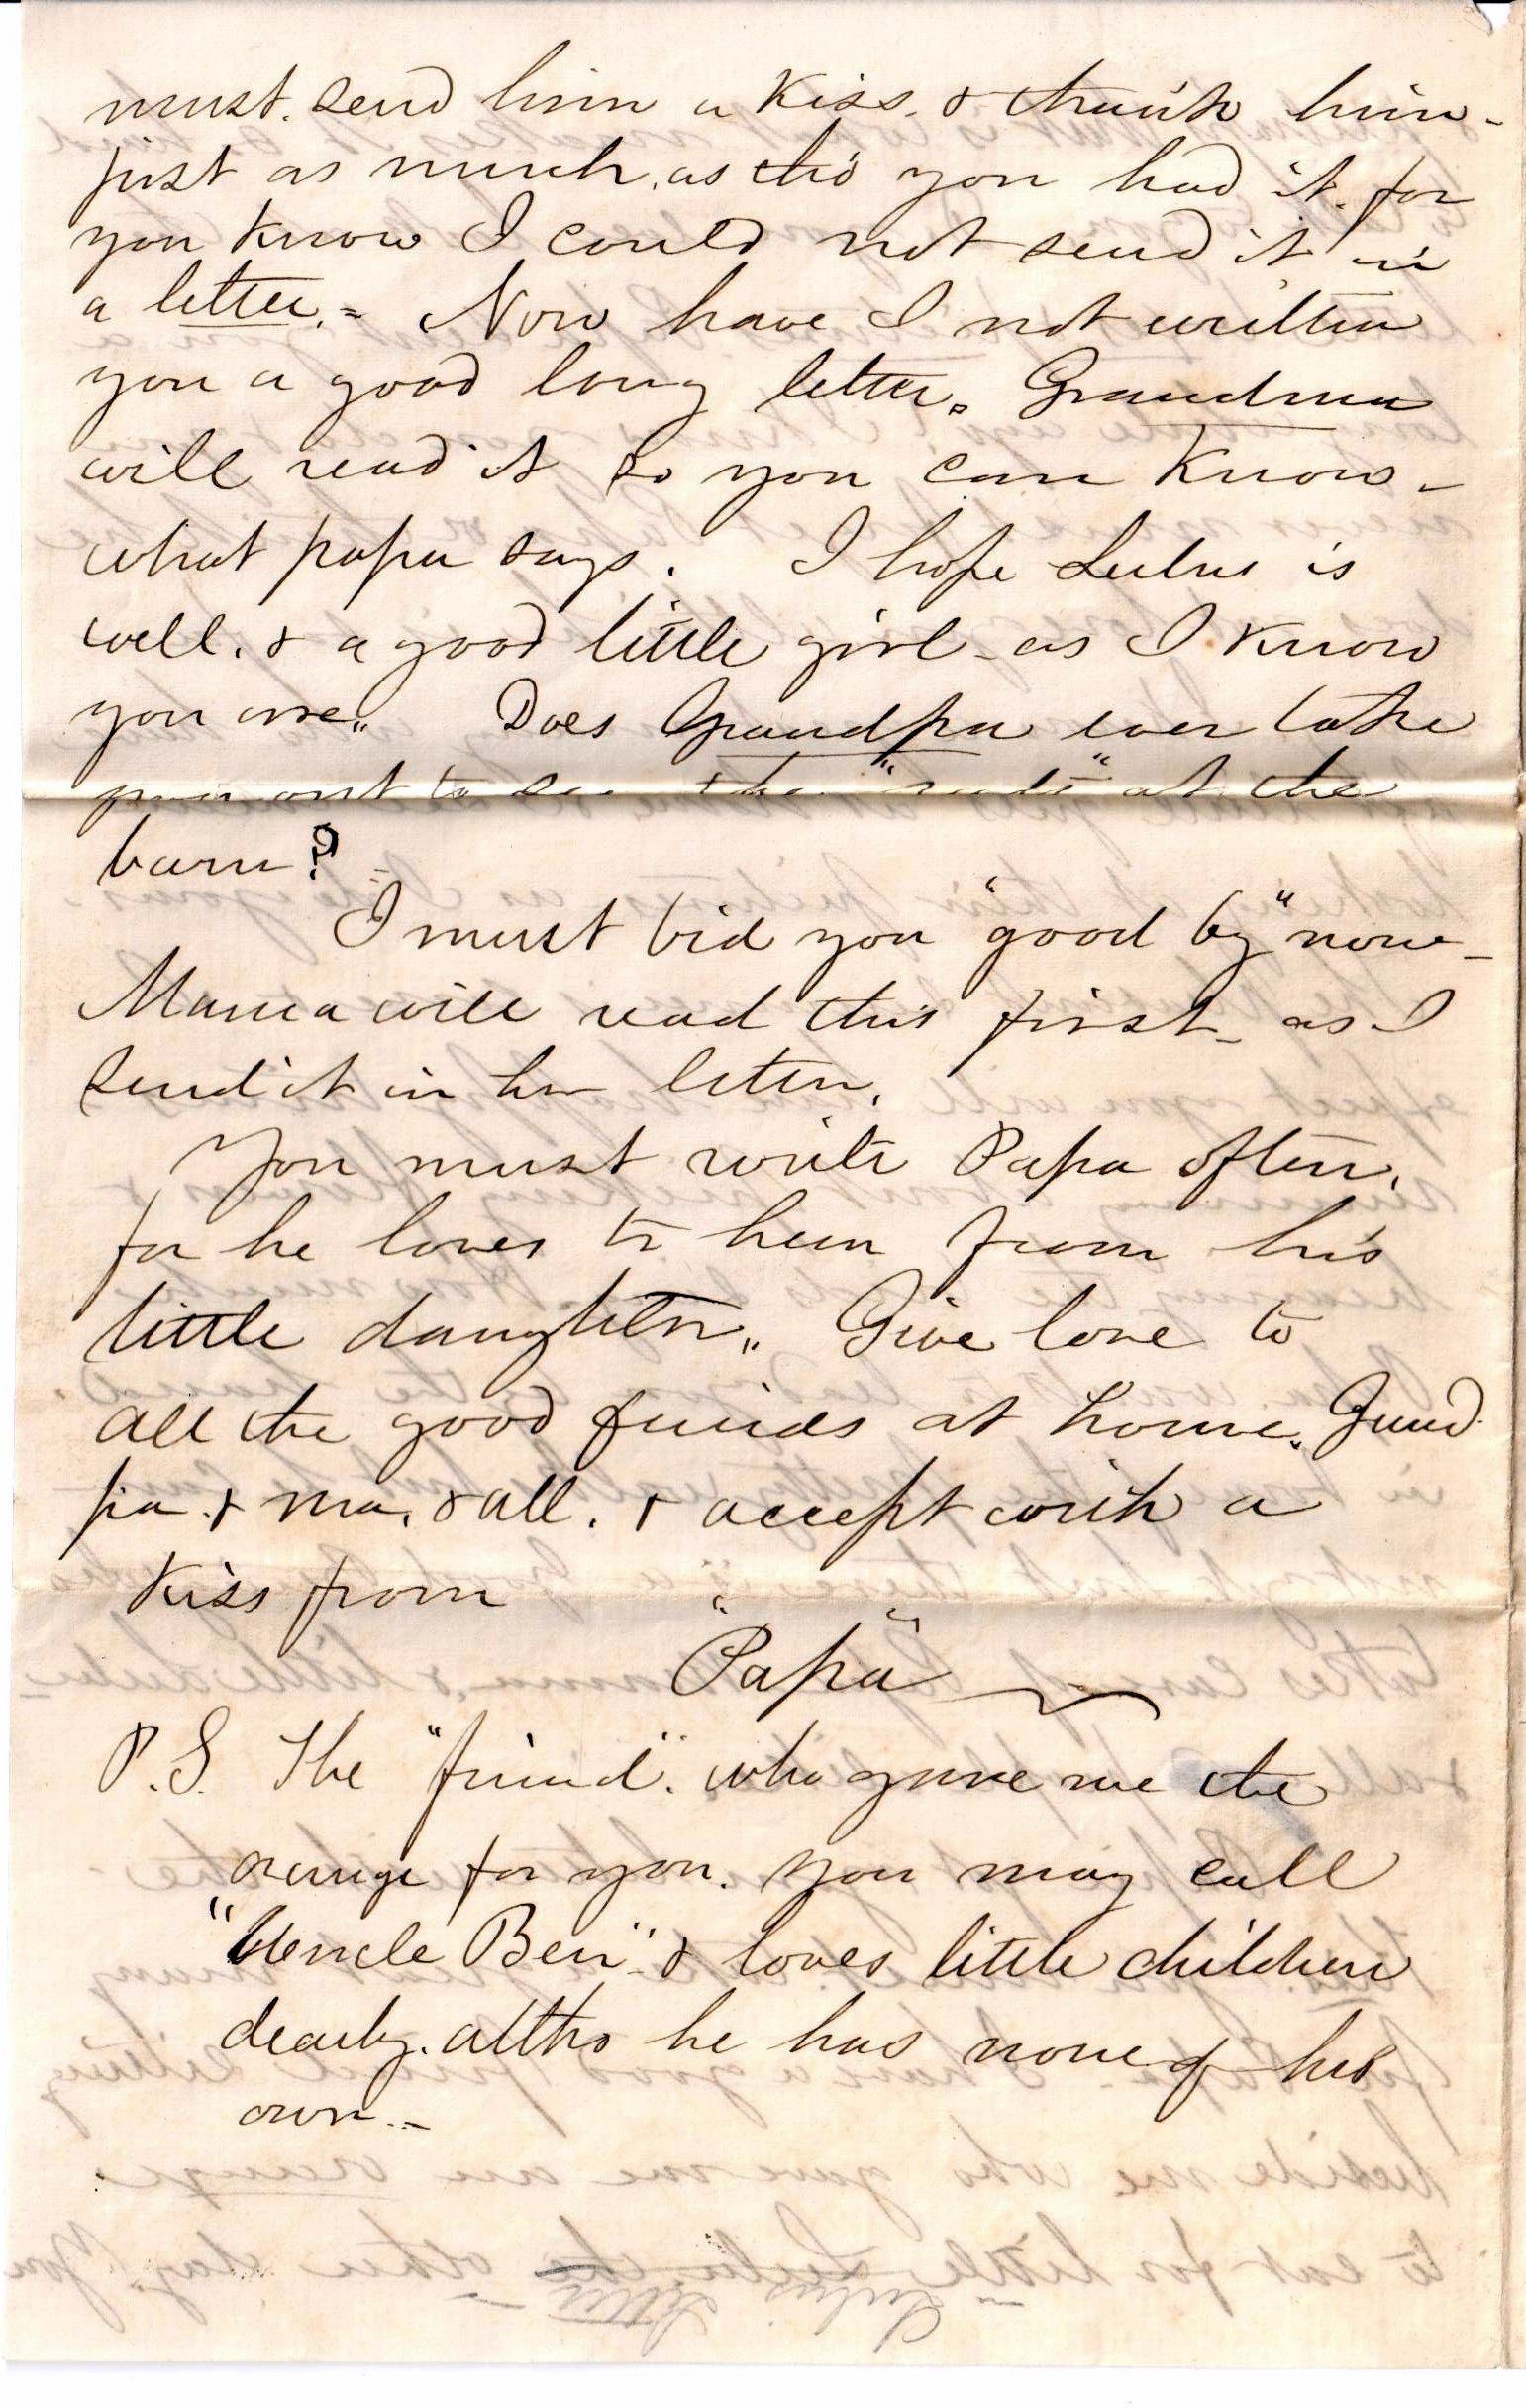 must. send him a Kiss. & thank him -
just as much, as tho' you had it. for
you know I could not send it in
a letter. = Now have I not written
you a good long letter. Grandma
will read it so you can Know -
what papa says. I hope Lulus is
well. & a good little girl - as I know
you are.. Does Grandpa ever take
you out to see the at the
barn?
I must bid you "good by" now -
Mama will read this first - as I
send it in her letter.
You must write Papa often.
for he loves to hear from his
little daughter.. Give love to
all the good friends at home. Grand
pa. & ma, & all. & accept with a
Kiss from
"Papa"
P.S. The "friend". who gave me the
orange for you. you may call
"Uncle Ben" & loves little children
dearly. altho he has none of his
own. -